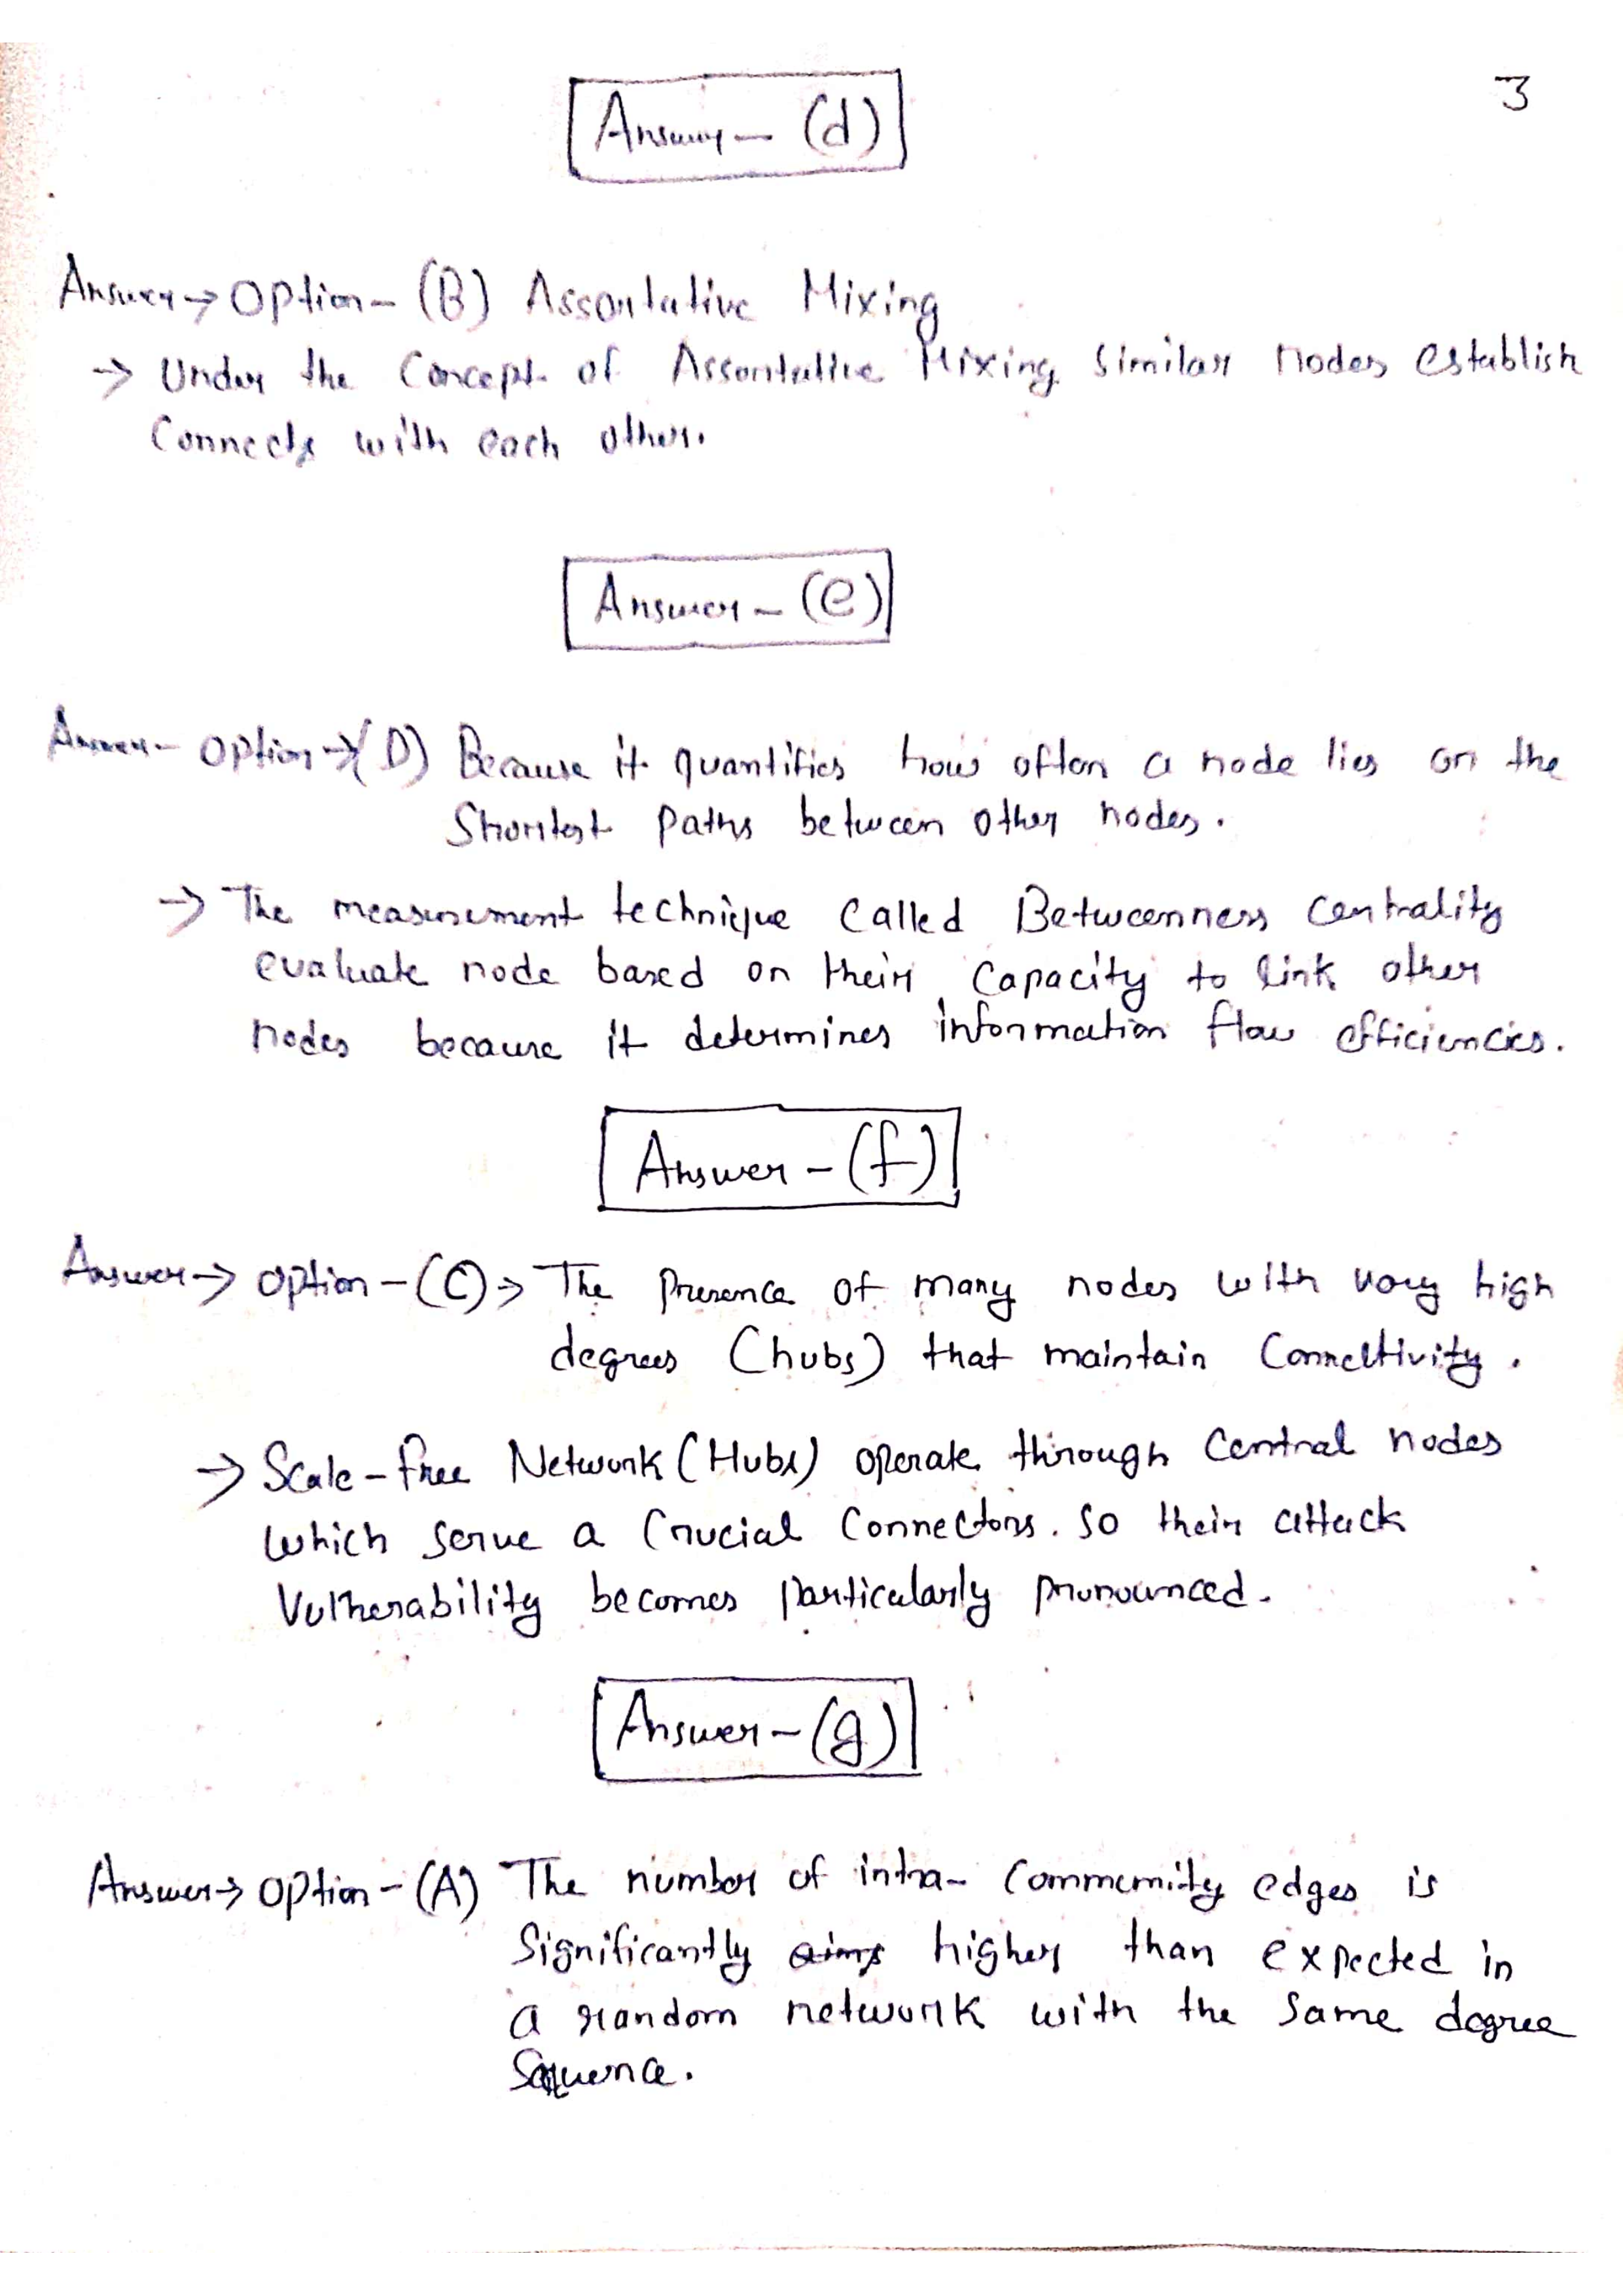 3
Answer - (d)
Answer → Option - (B) Assortative Mixing
→ Under the Concept of Assortative Mixing Similar nodes establish
Connects with each other.
Answer - (e)
Answer - Option → (D) Because it quantifies how often a node lies on the
Shortest paths between other nodes.
→ The measurement technique called Betweenness centrality
evaluate node based on their capacity to link other
nodes because it determines information flow efficiencies.
Answer - (f)
Answer → Option - (C) → The presence of many nodes with very high
degrees (hubs) that maintain Connectivity.
→ Scale-free Network (Hubs) operate through Central nodes
which serve a Crucial Connectors. So their attack
Vulnerability becomes particularly pronounced.
Answer - (g)
Answer → Option - (A) The number of intra- Community edges is
Significantly higher than expected in
a random network with the same degree
Sequence.